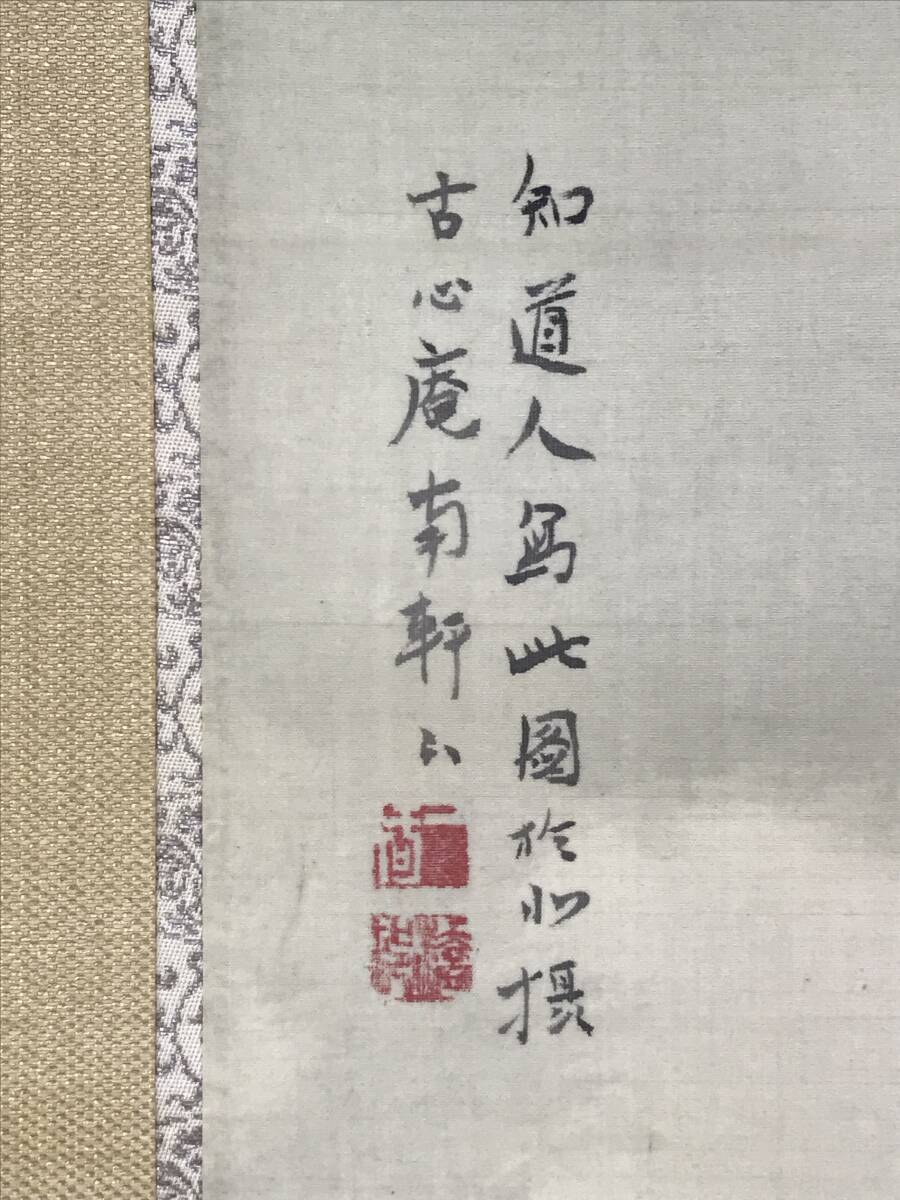 知道人写此圖於北摂
古心庵南軒下